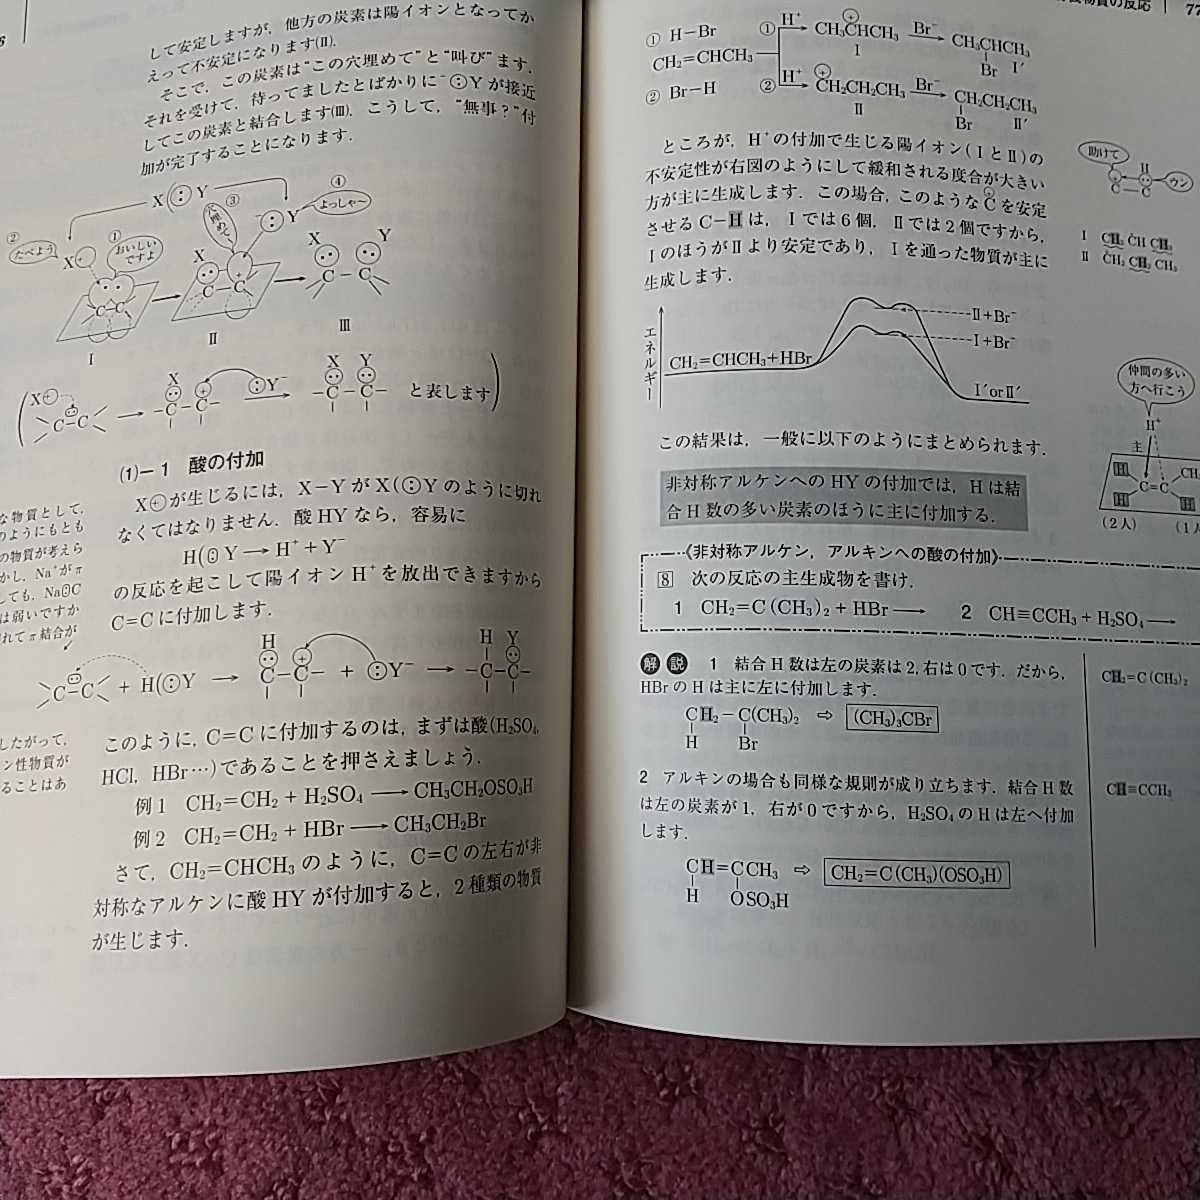 して安定しますが，他方の炭素は陽イオンとなってか
えって不安定になります(Ⅱ)．
そこで，この炭素は“この穴埋めて”と“叫び”ます．
それを受けて，待ってましたとばかりに⁻:Yが接近
してこの炭素と結合します(Ⅲ)．こうして，“無事？”付
加が完了することになります．
X(:Y
④
よっしゃー
③
穴埋めて
⁻:Y
②
たべよう
X+
①
おいしいですよ
X
X Y
C C
C－C
C－C
Ⅰ
Ⅱ
Ⅲ
X+
C=C
X
－C－C－
:Y⁻
X Y
－C－C－
と表します
(1)－1 酸の付加
X+が生じるには，X－YがX(:Yのように切れ
なくてはなりません．酸HYなら，容易に
H(:Y→H⁺+Y⁻
の反応を起こして陽イオンH⁺を放出できますから
C=Cに付加します．
C=C + H(:Y → H －C－C－ + :Y⁻ → H Y －C－C－
このように，C=Cに付加するのは，まずは酸(H₂SO₄,
HCl，HBr…)であることを押さえましょう．
例1 CH₂=CH₂+H₂SO₄→CH₃CH₂OSO₃H
例2 CH₂=CH₂+HBr→CH₃CH₂Br
さて，CH₂=CHCH₃のように，C=Cの左右が非
対称なアルケンに酸HYが付加すると，2種類の物質
が生じます．
な物質として，
のようにもとも
の物質が考えら
かし，Na⁺がπ
しても，Na:C
は弱いですか
れてπ結合が
したがって，
ン性物質が
ることはあ
物質の反応 77
① H－Br
CH₂=CHCH₃
② Br－H
① H⁺ CH₃CHCH₃ Br⁻ CH₃CHCH₃
Ⅰ Br Ⅰ′
② H⁺ CH₂CH₂CH₃ Br⁻ CH₂CH₂CH₃
Ⅱ Br Ⅱ′
ところが，H⁺の付加で生じる陽イオン(ⅠとⅡ)の
不安定性が右図のようにして緩和される度合が大きい
方が主に生成します．この場合，このようなC⁺を安定
させるC－Hは，Ⅰでは6個，Ⅱでは2個ですから，
ⅠのほうがⅡより安定であり，Ⅰを通った物質が主に
生成します．
助けて
H
ウン
C－C
Ⅰ CH₃ CH CH₃
Ⅱ CH₂ CH₂ CH₃
エネルギー
CH₂=CHCH₃+HBr
Ⅱ+Br⁻
Ⅰ+Br⁻
Ⅰ′orⅡ′
この結果は，一般に以下のようにまとめられます．
非対称アルケンへのHYの付加では，Hは結
合H数の多い炭素のほうに主に付加する．
仲間の多い
方へ行こう
H⁺
主
H
C=C
CH
H
H
(2人)
(1人
《非対称アルケン，アルキンへの酸の付加》
8 次の反応の主生成物を書け．
1 CH₂=C(CH₃)₂+HBr→ 2 CH≡CCH₃+H₂SO₄→
解説 1 結合H数は左の炭素は2,右は0です．だから，
HBrのHは主に左に付加します．
CH₂－C(CH₃)₂ ⇨ (CH₃)₃CBr
H Br
CH₂=C(CH₃)₂
2 アルキンの場合も同様な規則が成り立ちます．結合H数
は左の炭素が1，右が0ですから，H₂SO₄のHは左へ付加
します．
CH≡CCH₃
CH=CCH₃ ⇨ CH₂=C(CH₃)(OSO₃H)
H OSO₃H